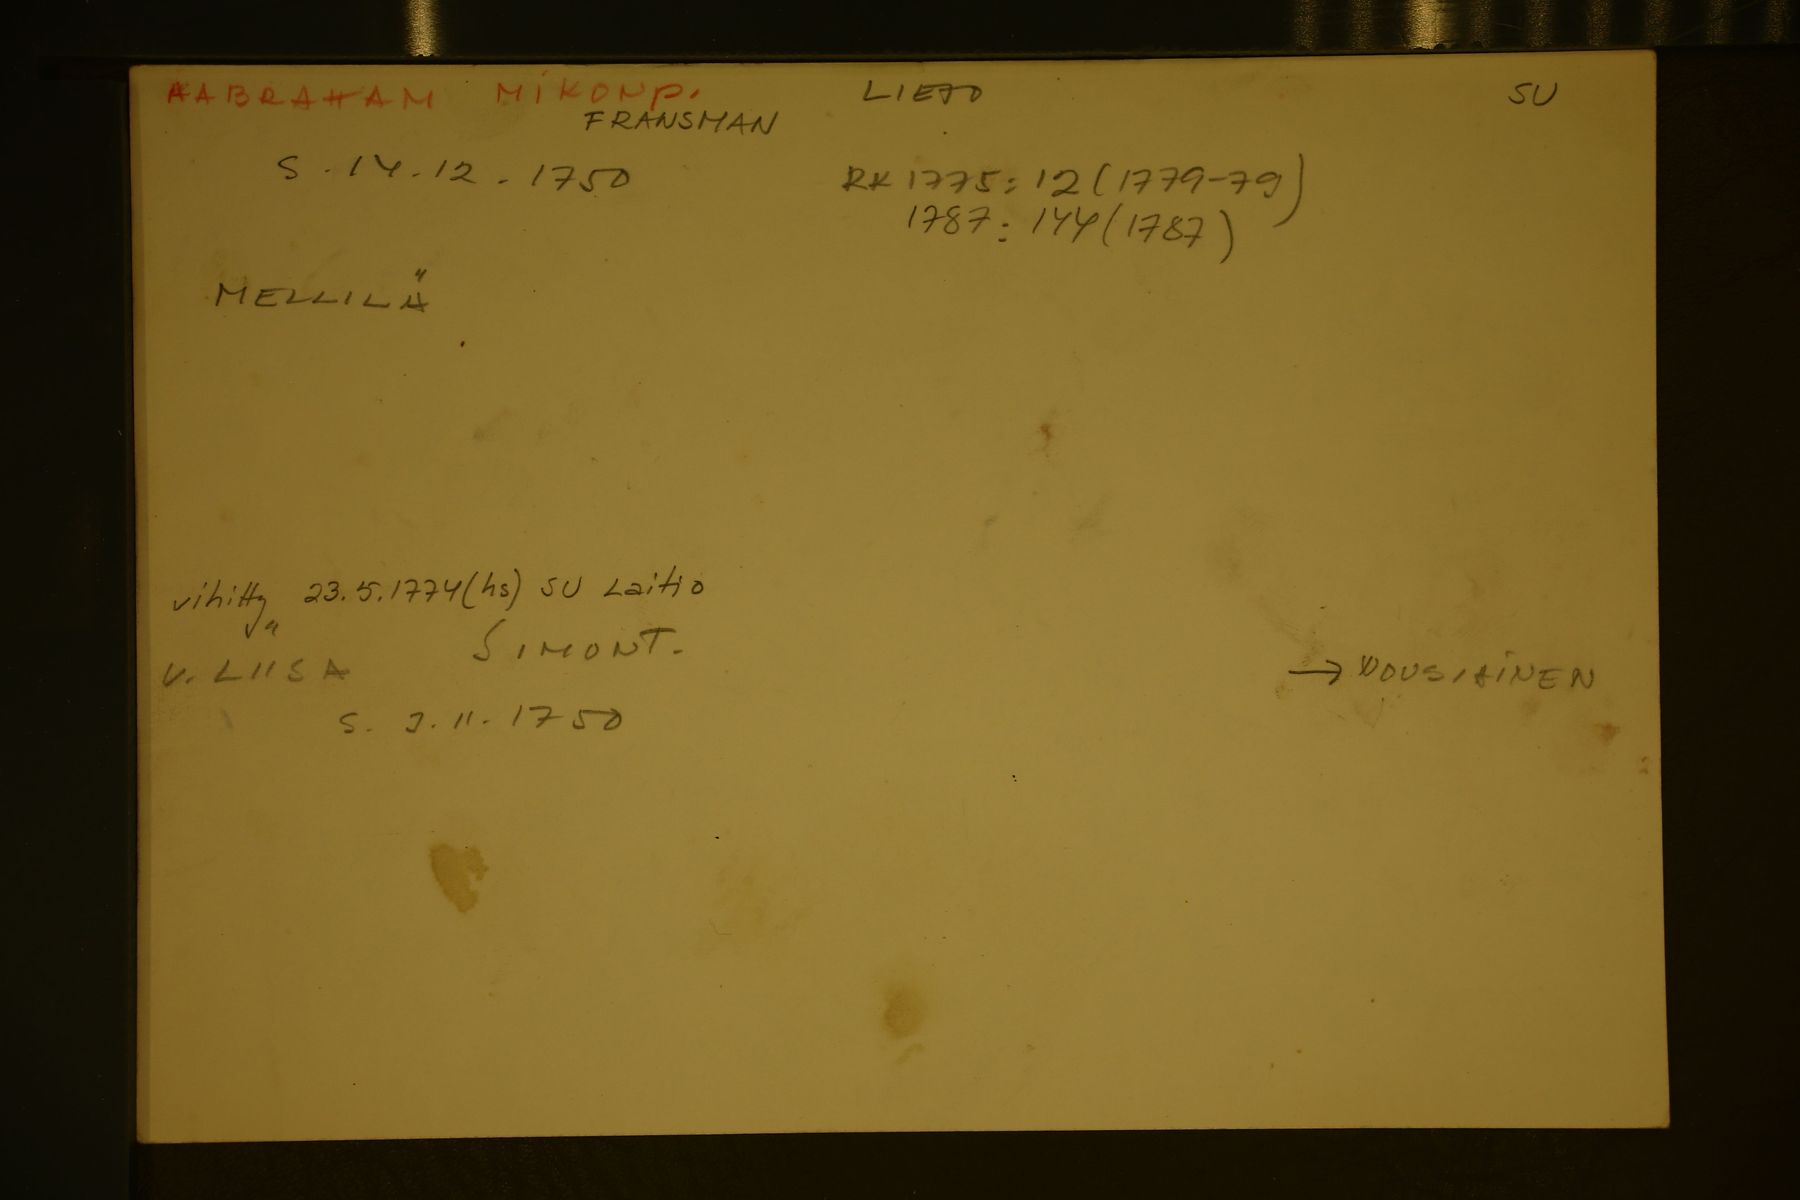 AABRAHAM MIKONP. LIETO SU
FRANSMAN
S. 14.12.1750 RK 1775: 12 (1779-79)
1787: 144 (1787)
MELLILÄ
vihitty 23.5.1774 (hs) SU Laitio
V. LIISA SIMONT.
S. 3.11.1750
→ NOUSIAINEN